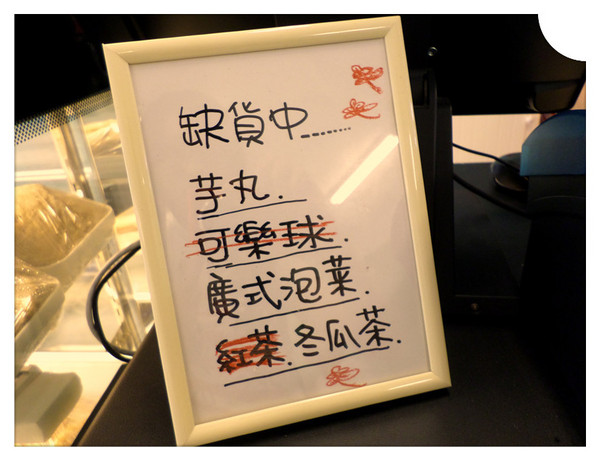 缺貨中........
芋丸.
可樂球.
廣式泡菜.
紅茶.冬瓜茶.